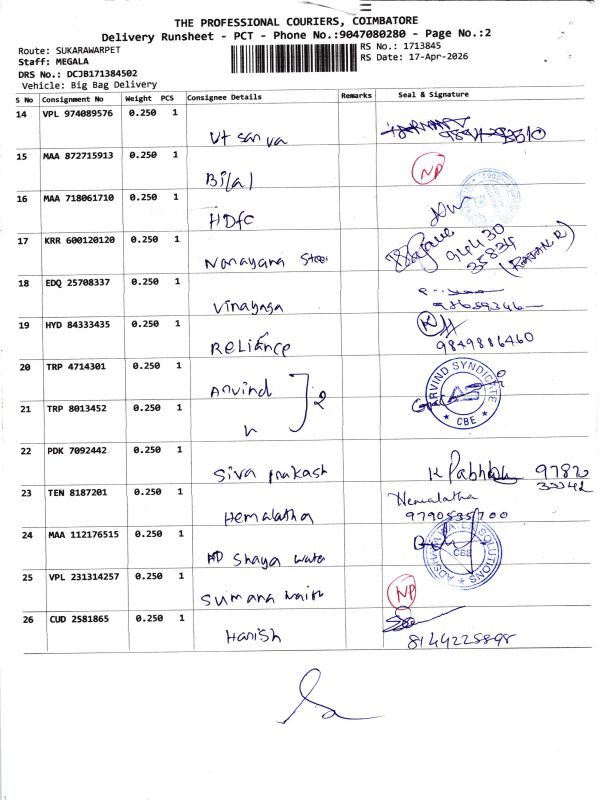 THE PROFESSIONAL COURIERS, COIMBATORE
Delivery Runsheet - PCT - Phone No.:9047080280 - Page No.:2
Route: SUKARAWARPET
RS No.: 1713845
Staff: MEGALA
RS Date: 17-Apr-2026
DRS No.: DCJB171384502
Vehicle: Big Bag Delivery
S No Consignment No Weight PCS Consignee Details Remarks Seal & Signature
14 VPL 974089576 0.250 1
15 MAA 872715913 0.250 1
Bilal NP
16 MAA 718061710 0.250 1
HDfc
17 KRR 600120120 0.250 1
Narayana Steel 94430 35834
18 EDQ 25708337 0.250 1
Vinayaga
19 HYD 84333435 0.250 1
Reliance K 9849886460
20 TRP 4714301 0.250 1
Arvind 2 ARVIND SYNDICATE AS CBE
21 TRP 8013452 0.250 1
22 PDK 7092442 0.250 1
Siva prakash
23 TEN 8187201 0.250 1
Hemalatha Hemalatha
9790535700
24 MAA 112176515 0.250 1
AD Shaya Wate SOLUTIONS CBE
25 VPL 231314257 0.250 1
Sumana NP
26 CUD 2581865 0.250 1
Harish 8144225898